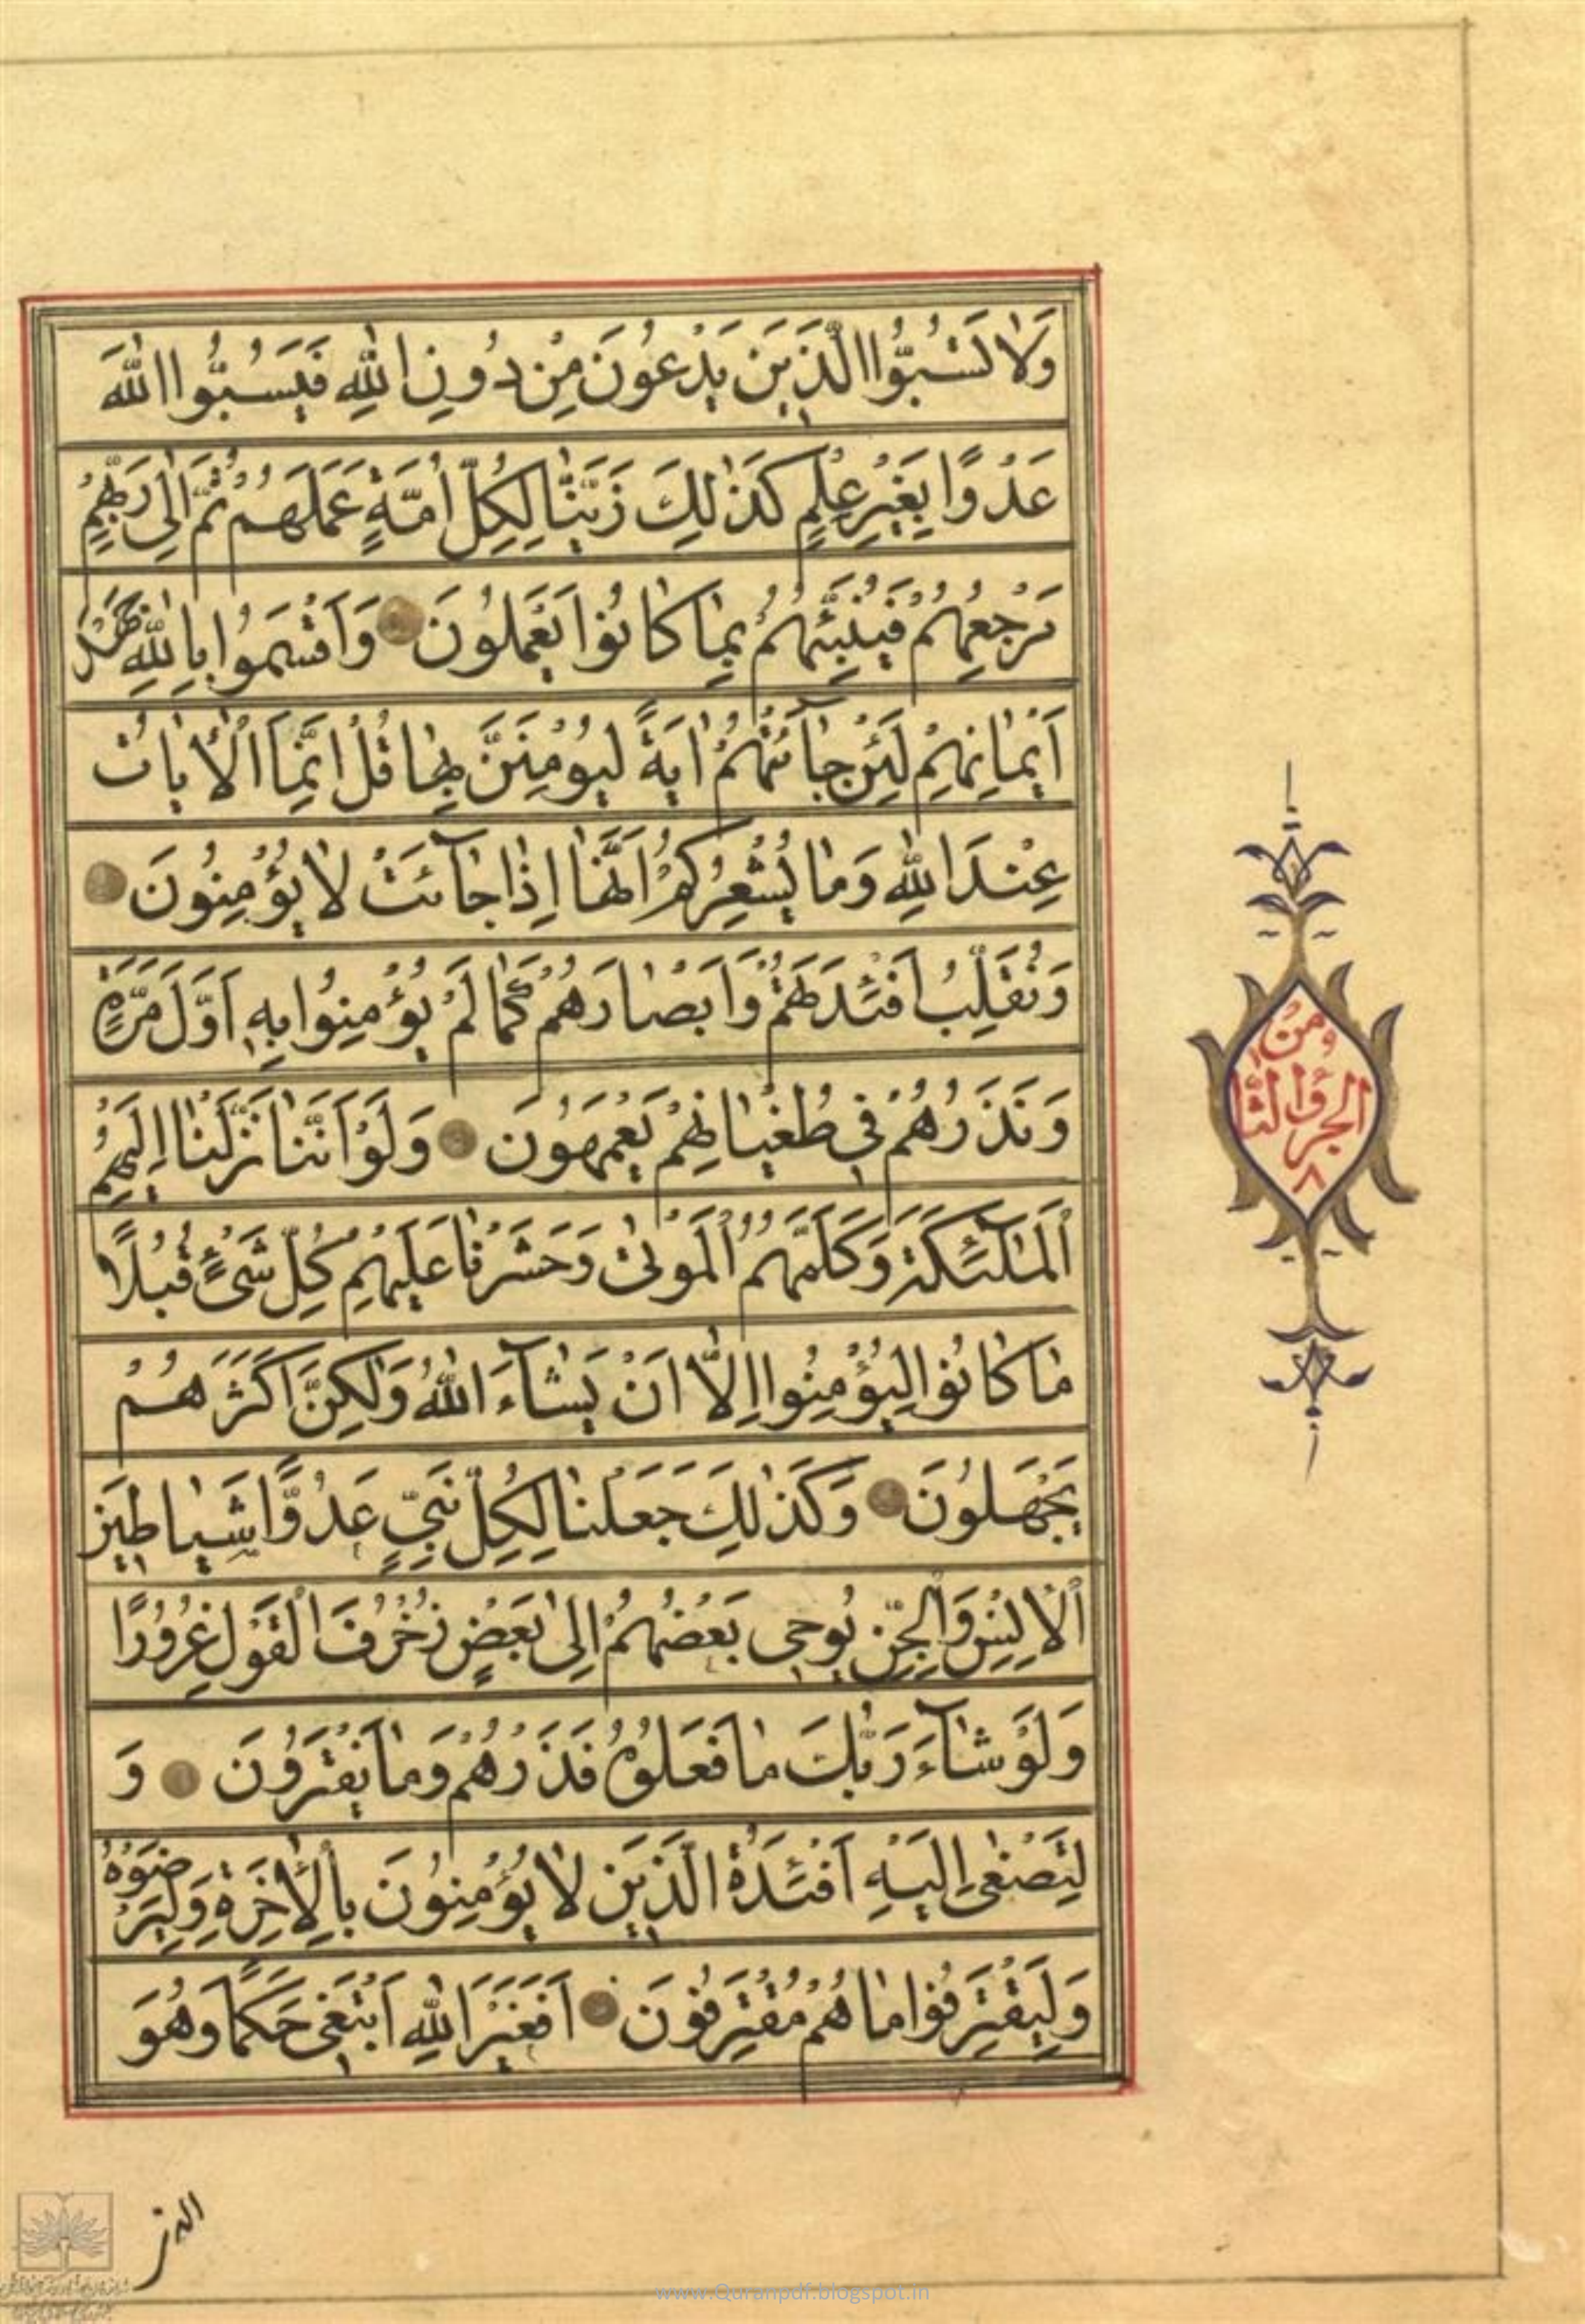 وَلَا تَسُبُّوا الَّذِينَ يَدْعُونَ مِنْ دُونِ اللَّهِ فَيَسُبُّوا اللَّهَ
عَدْوًا بِغَيْرِ عِلْمٍ كَذَٰلِكَ زَيَّنَّا لِكُلِّ أُمَّةٍ عَمَلَهُمْ ثُمَّ إِلَىٰ رَبِّهِمْ
مَرْجِعُهُمْ فَيُنَبِّئُهُمْ بِمَا كَانُوا يَعْمَلُونَ وَأَقْسَمُوا بِاللَّهِ جَهْدَ
أَيْمَانِهِمْ لَئِنْ جَاءَتْهُمْ آيَةٌ لَيُؤْمِنُنَّ بِهَا قُلْ إِنَّمَا الْآيَاتُ
عِنْدَ اللَّهِ وَمَا يُشْعِرُكُمْ أَنَّهَا إِذَا جَاءَتْ لَا يُؤْمِنُونَ
وَنُقَلِّبُ أَفْئِدَتَهُمْ وَأَبْصَارَهُمْ كَمَا لَمْ يُؤْمِنُوا بِهِ أَوَّلَ مَرَّةٍ
وَنَذَرُهُمْ فِي طُغْيَانِهِمْ يَعْمَهُونَ وَلَوْ أَنَّنَا نَزَّلْنَا إِلَيْهِمُ
الْمَلَائِكَةَ وَكَلَّمَهُمُ الْمَوْتَىٰ وَحَشَرْنَا عَلَيْهِمْ كُلَّ شَيْءٍ قُبُلًا
مَا كَانُوا لِيُؤْمِنُوا إِلَّا أَنْ يَشَاءَ اللَّهُ وَلَٰكِنَّ أَكْثَرَهُمْ
يَجْهَلُونَ وَكَذَٰلِكَ جَعَلْنَا لِكُلِّ نَبِيٍّ عَدُوًّا شَيَاطِينَ
الْإِنْسِ وَالْجِنِّ يُوحِي بَعْضُهُمْ إِلَىٰ بَعْضٍ زُخْرُفَ الْقَوْلِ غُرُورًا
وَلَوْ شَاءَ رَبُّكَ مَا فَعَلُوهُ فَذَرْهُمْ وَمَا يَفْتَرُونَ وَ
لِتَصْغَىٰ إِلَيْهِ أَفْئِدَةُ الَّذِينَ لَا يُؤْمِنُونَ بِالْآخِرَةِ وَلِيَرْضَوْهُ
وَلِيَقْتَرِفُوا مَا هُمْ مُقْتَرِفُونَ أَفَغَيْرَ اللَّهِ أَبْتَغِي حَكَمًا وَهُوَ
ومن
الجزؤ الثا
٨
www.Quranpdf.blogspot.in